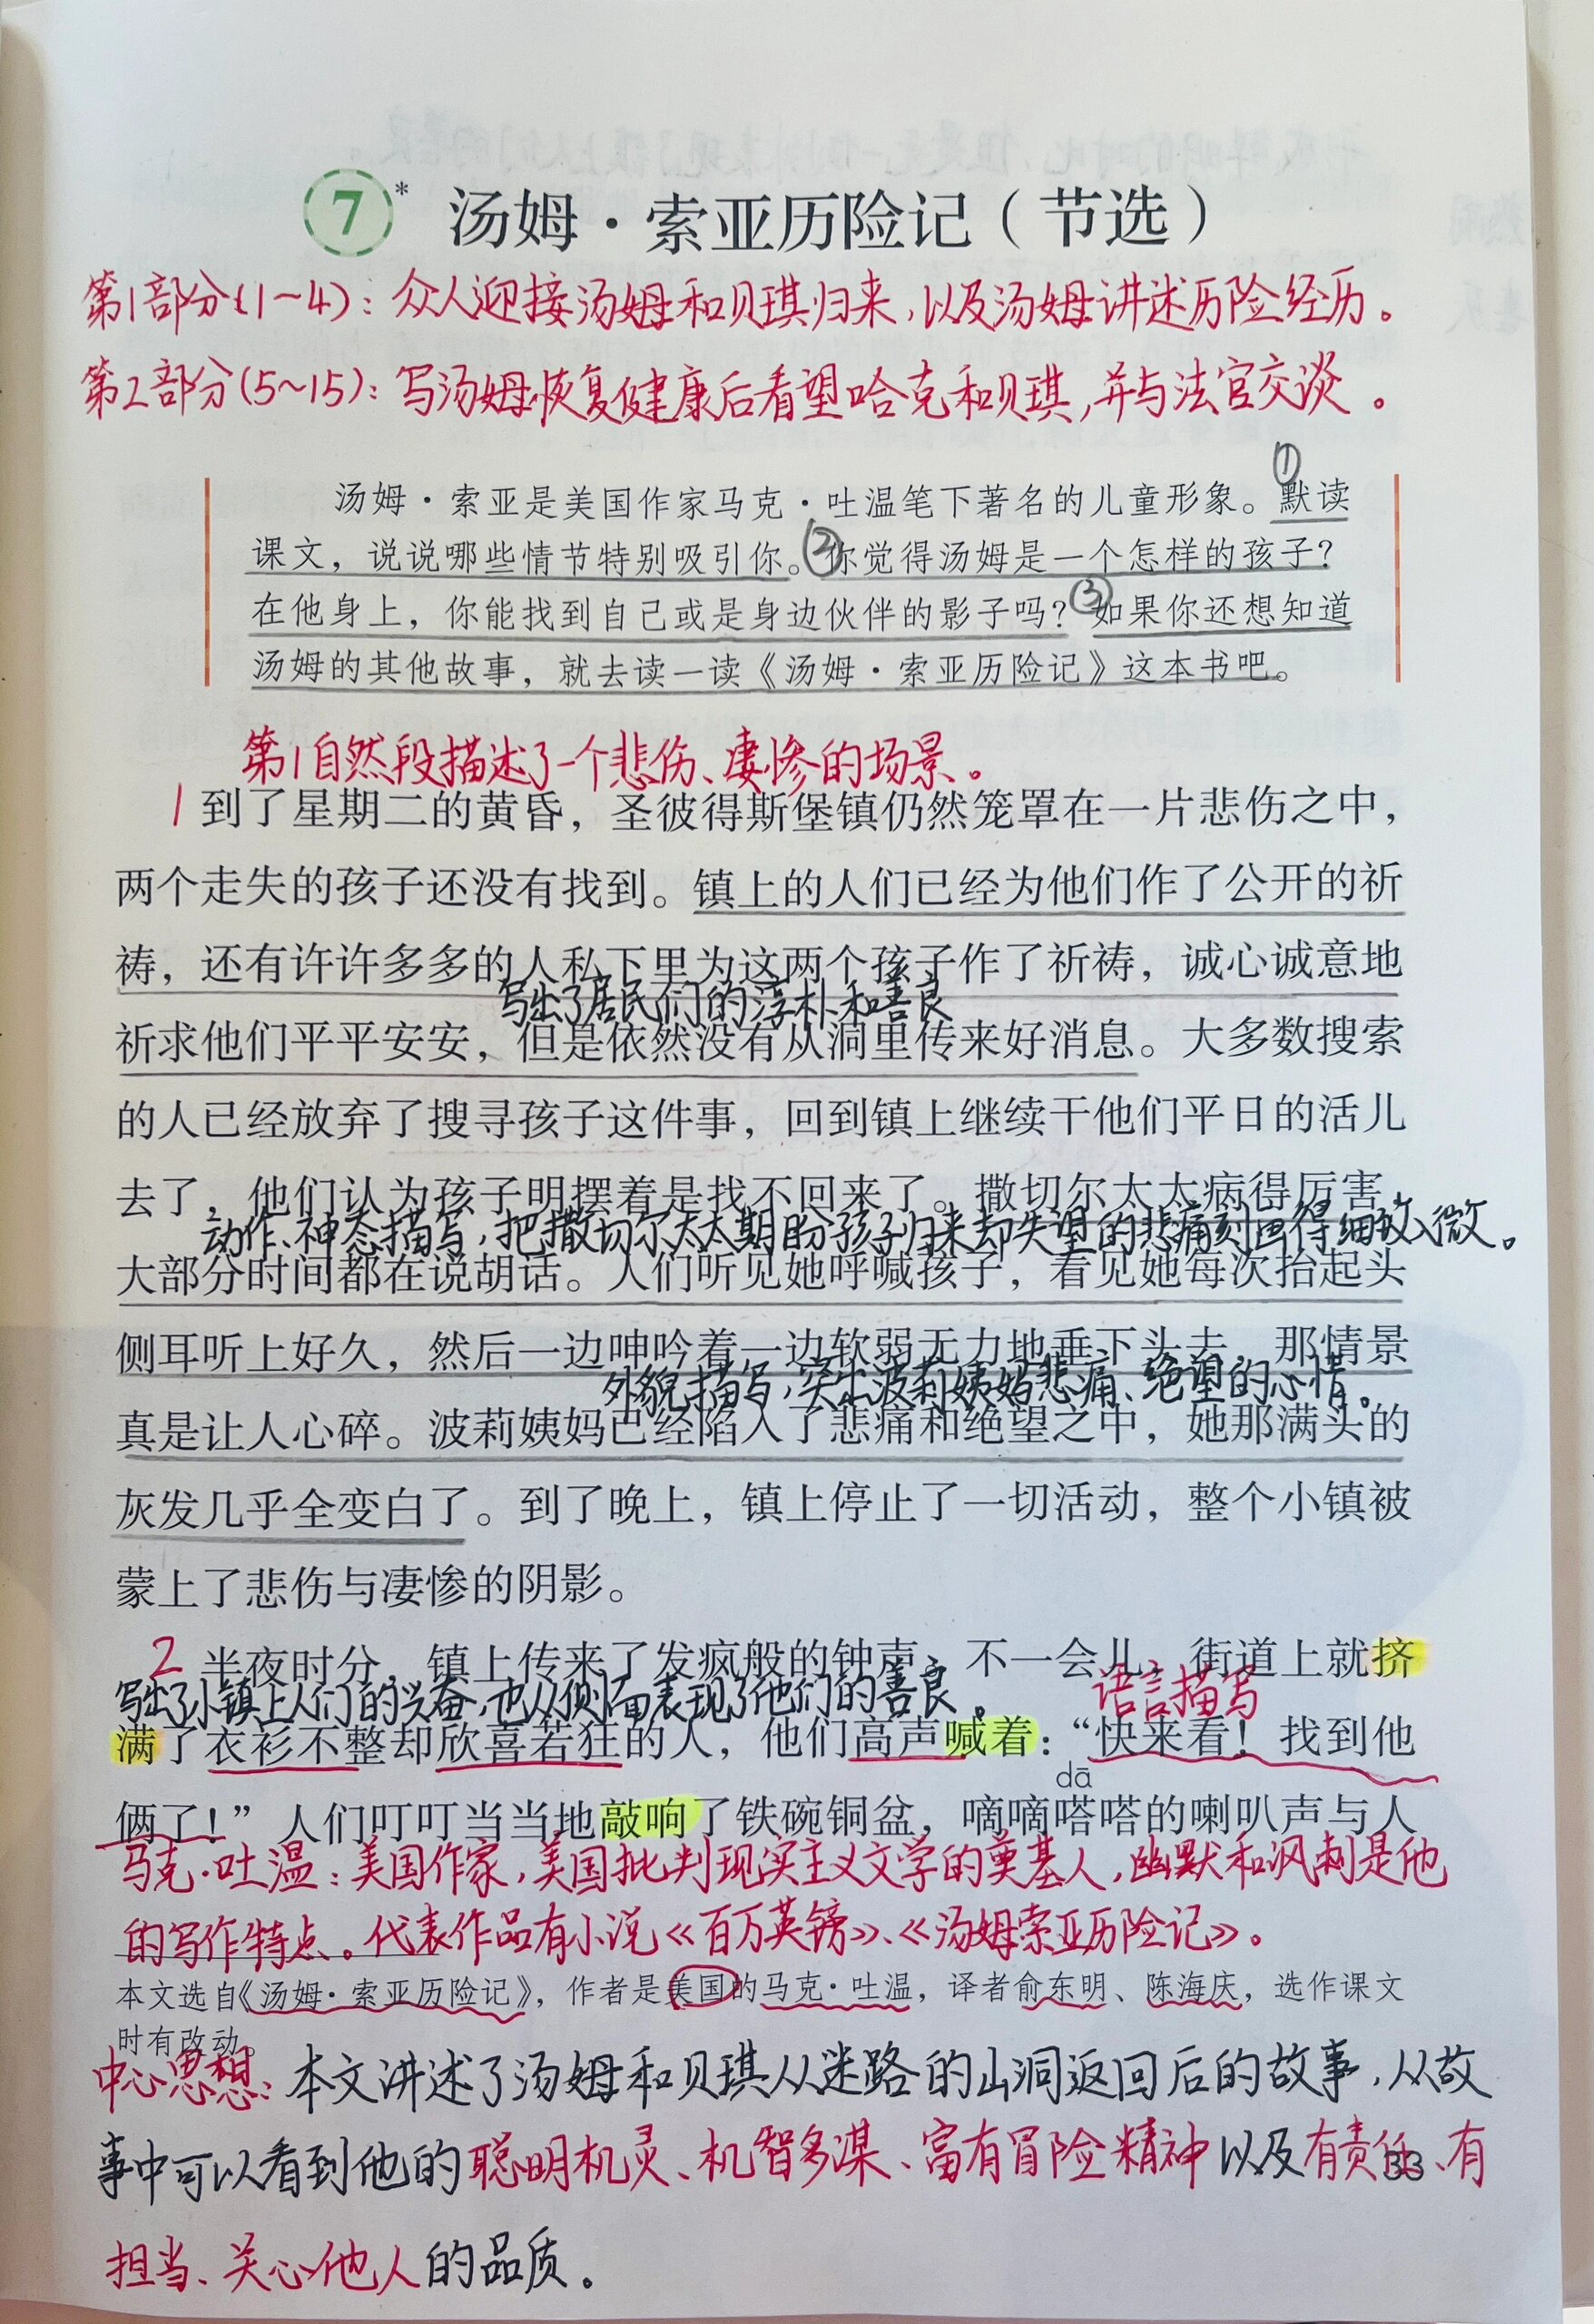 7* 汤姆·索亚历险记（节选）
第1部分(1~4)：众人迎接汤姆和贝琪归来，以及汤姆讲述历险经历。
第2部分(5~15)：写汤姆恢复健康后看望哈克和贝琪，并与法官交谈。
①
汤姆·索亚是美国作家马克·吐温笔下著名的儿童形象。默读
课文，说说哪些情节特别吸引你。②你觉得汤姆是一个怎样的孩子？
在他身上，你能找到自己或是身边伙伴的影子吗？③如果你还想知道
汤姆的其他故事，就去读一读《汤姆·索亚历险记》这本书吧。
第1自然段描述了一个悲伤、凄惨的场景。
1 到了星期二的黄昏，圣彼得斯堡镇仍然笼罩在一片悲伤之中，
两个走失的孩子还没有找到。镇上的人们已经为他们作了公开的祈
祷，还有许许多多的人私下里为这两个孩子作了祈祷，诚心诚意地
写出了居民们的淳朴和善良
祈求他们平平安安，但是依然没有从洞里传来好消息。大多数搜索
的人已经放弃了搜寻孩子这件事，回到镇上继续干他们平日的活儿
去了，他们认为孩子明摆着是找不回来了。撒切尔太太病得厉害，
动作、神态描写，把撒切尔太太期盼孩子归来却失望的悲痛刻画得细致入微。
大部分时间都在说胡话。人们听见她呼喊孩子，看见她每次抬起头
侧耳听上好久，然后一边呻吟着一边软弱无力地垂下头去，那情景
外貌描写，突出波莉姨妈悲痛、绝望的心情。
真是让人心碎。波莉姨妈已经陷入了悲痛和绝望之中，她那满头的
灰发几乎全变白了。到了晚上，镇上停止了一切活动，整个小镇被
蒙上了悲伤与凄惨的阴影。
2 半夜时分，镇上传来了发疯般的钟声，不一会儿，街道上就挤
写出了小镇上人们的兴奋，也从侧面表现了他们的善良。 语言描写
满了衣衫不整却欣喜若狂的人，他们高声喊着：“快来看！找到他
dā
俩了！”人们叮叮当当地敲响了铁碗铜盆，嘀嘀嗒嗒的喇叭声与人
马克·吐温：美国作家，美国批判现实主义文学的奠基人，幽默和讽刺是他
的写作特点。代表作品有小说《百万英镑》、《汤姆索亚历险记》。
本文选自《汤姆·索亚历险记》，作者是美国的马克·吐温，译者俞东明、陈海庆，选作课文
时有改动。
中心思想：本文讲述了汤姆和贝琪从迷路的山洞返回后的故事，从故
事中可以看到他的聪明机灵、机智多谋、富有冒险精神以及有责任、有
33
担当、关心他人的品质。